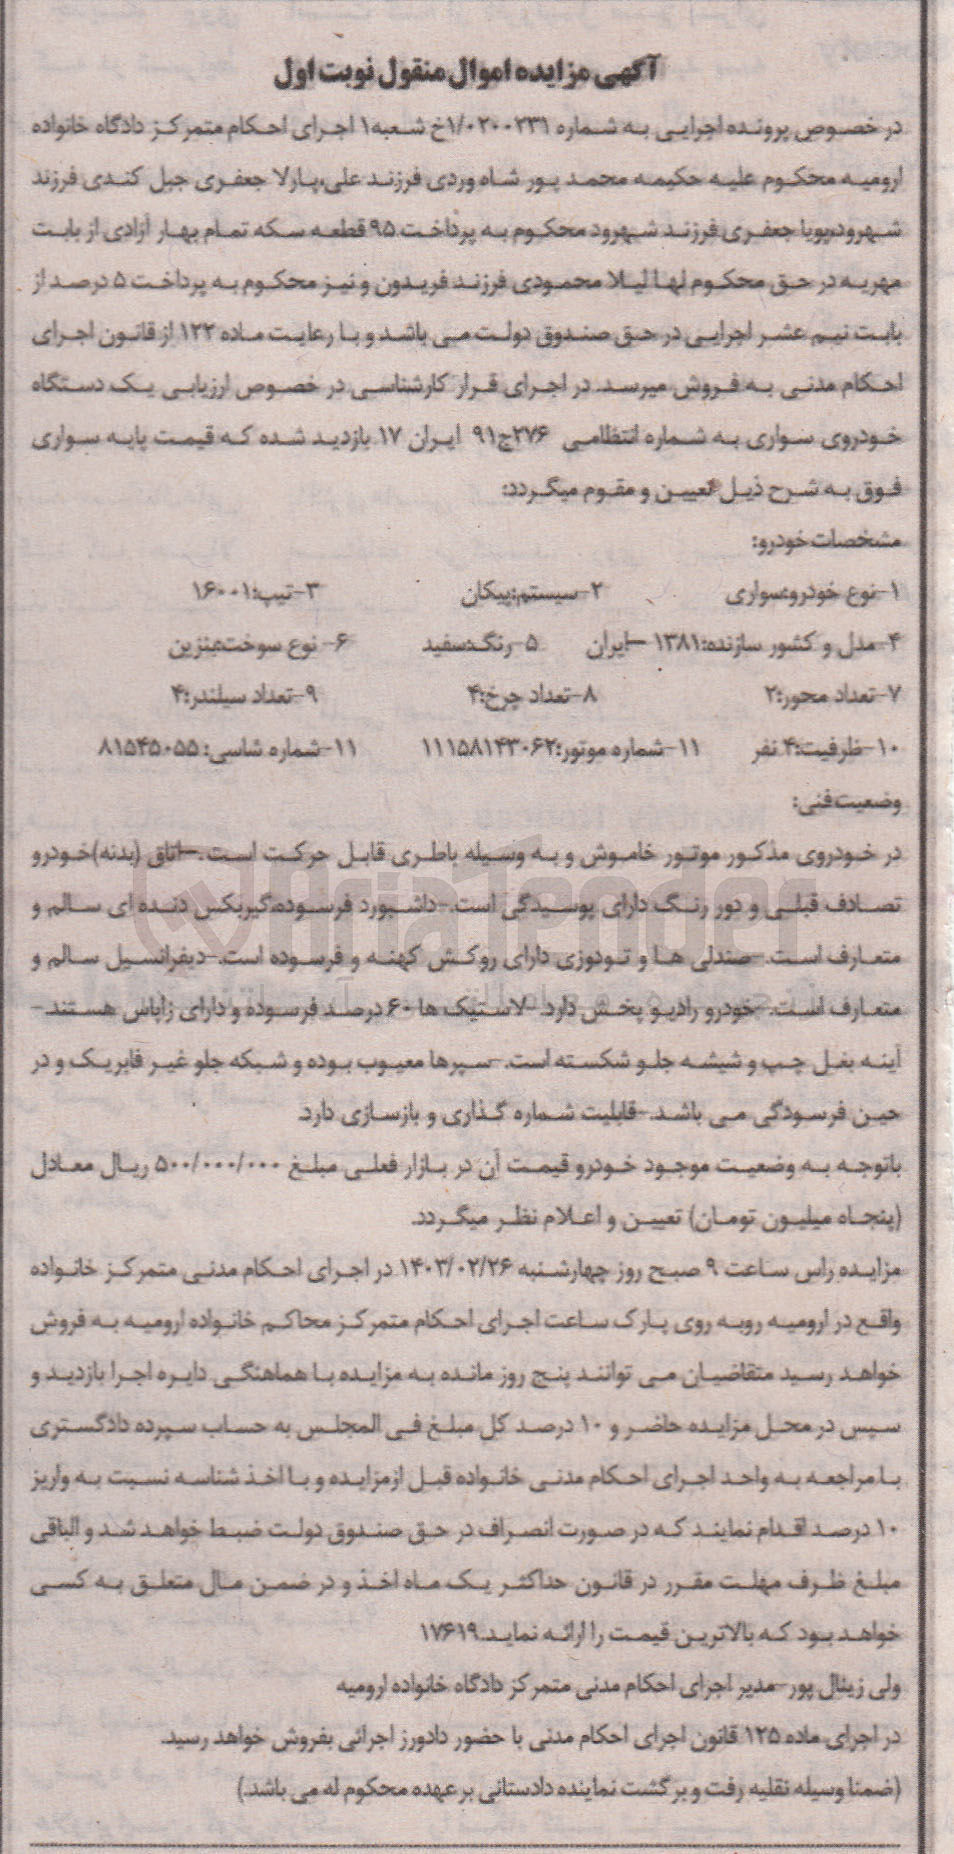 آگهی مزایده اموال منقول نوبت اول
در خصوص پرونده اجرایی به شماره ۱/۰۲۰۰۲۳۱خ شعبه۱ اجرای احکام متمرکز دادگاه خانواده
ارومیه محکوم علیه حکیمه محمد پور شاه وردی فرزند علی،پارلا جعفری جبل کندی فرزند
شهرود،پویا جعفری فرزند شهرود محکوم به پرداخت ۹۵ قطعه سکه تمام بهار آزادی از بابت
مهریه در حق محکوم لها لیلا محمودی فرزند فریدون و نیز محکوم به پرداخت ۵ درصد از
بابت نیم عشر اجرایی در حق صندوق دولت می باشد و با رعایت ماده ۱۲۲ از قانون اجرای
احکام مدنی به فروش میرسد. در اجرای قرار کارشناسی در خصوص ارزیابی یک دستگاه
خودروی سواری به شماره انتظامی ۲۷۶ج۹۱ ایران ۱۷ بازدید شده که قیمت پایه سواری
فوق به شرح ذیل تعیین و مقوم میگردد:
مشخصات خودرو:
۱-نوع خودرو:سواری ۲-سیستم:پیکان ۳-تیپ:۱۶۰۰۱
۴-مدل و کشور سازنده:۱۳۸۱-ایران ۵-رنگ:سفید ۶- نوع سوخت:بنزین
۷-تعداد محور:۲ ۸-تعداد چرخ:۴ ۹-تعداد سیلندر:۴
۱۰-ظرفیت:۴ نفر ۱۱-شماره موتور:۱۱۱۵۸۱۴۳۰۶۲ ۱۱-شماره شاسی: ۸۱۵۴۵۰۵۵
وضعیت فنی:
در خودروی مذکور موتور خاموش و به وسیله باطری قابل حرکت است.-اتاق (بدنه)خودرو
تصادف قبلی و دور رنگ دارای پوسیدگی است.-داشبورد فرسوده،گیربکس دنده ای سالم و
متعارف است.-صندلی ها و تودوزی دارای روکش کهنه و فرسوده است.-دیفرانسیل سالم و
متعارف است.-خودرو رادیو پخش دارد.-لاستیک ها ۶۰ درصد فرسوده و دارای زاپاس هستند.-
آینه بغل چپ و شیشه جلو شکسته است.-سپرها معیوب بوده و شبکه جلو غیر فابریک و در
حین فرسودگی می باشد.-قابلیت شماره گذاری و بازسازی دارد.
باتوجه به وضعیت موجود خودرو قیمت آن در بازار فعلی مبلغ ۵۰۰/۰۰۰/۰۰۰ ریال معادل
(پنجاه میلیون تومان) تعیین و اعلام نظر میگردد.
مزایده راس ساعت ۹ صبح روز چهارشنبه ۱۴۰۳/۰۲/۲۶ در اجرای احکام مدنی متمرکز خانواده
واقع در ارومیه روبه روی پارک ساعت اجرای احکام متمرکز محاکم خانواده ارومیه به فروش
خواهد رسید متقاضیان می توانند پنج روز مانده به مزایده با هماهنگی دایره اجرا بازدید و
سپس در محل مزایده حاضر و ۱۰ درصد کل مبلغ فی المجلس به حساب سپرده دادگستری
با مراجعه به واحد اجرای احکام مدنی خانواده قبل ازمزایده و با اخذ شناسه نسبت به واریز
۱۰ درصد اقدام نمایند که در صورت انصراف در حق صندوق دولت ضبط خواهد شد و الباقی
مبلغ ظرف مهلت مقرر در قانون حداکثر یک ماه اخذ و در ضمن مال متعلق به کسی
خواهد بود که بالاترین قیمت را ارائه نماید.۱۷۶۱۹
ولی زینال پور-مدیر اجرای احکام مدنی متمرکز دادگاه خانواده ارومیه
در اجرای ماده ۱۲۵ قانون اجرای احکام مدنی با حضور دادورز اجرائی بفروش خواهد رسید.
(ضمنا وسیله نقلیه رفت و برگشت نماینده دادستانی بر عهده محکوم له می باشد.)
AriaTender